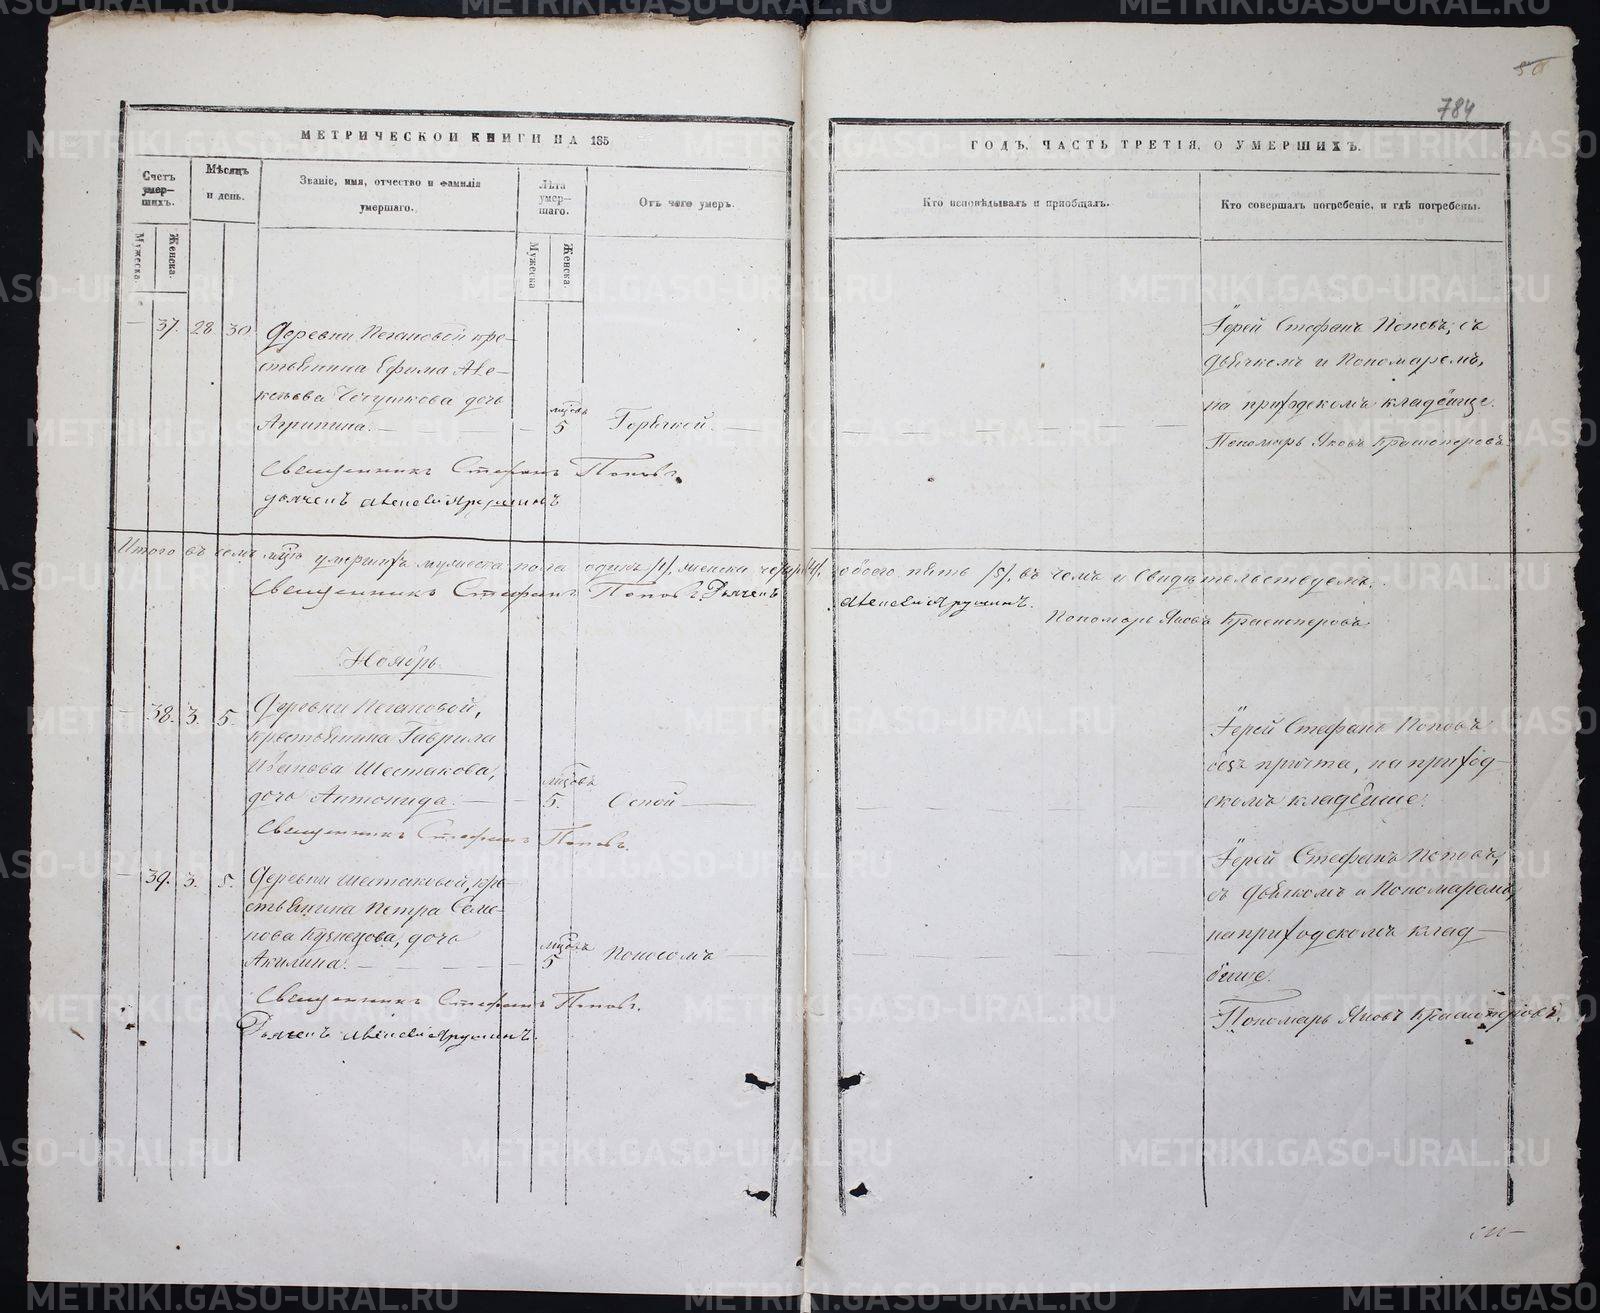 50
784
МЕТРИЧЕСКОЙ КНИГИ НА 185
ГОДЪ, ЧАСТЬ ТРЕТІЯ, О УМЕРШИХЪ.
Счетъ умер-шихъ.
Мѣсяцъ и день.
Званіе, имя, отчество и фамилія умершаго.
Лѣта умер-шаго.
Отъ чего умеръ.
Кто исповѣдывалъ и пріобщалъ.
Кто совершалъ погребеніе, и гдѣ погребены.
Мужеска.
Женска.
Мужеска
Женска.
37. 28. 30.
Деревни Пегановой кре-
стьянина Ефима Але-
ксѣева Чечушкова дочь
Агрипина. мцовъ 5 Горячкой.
Священникъ Стефанъ Поповъ.
дьячекъ Алексѣй
Іерей Стефанъ Поповъ, съ
дьячкомъ и Пономаремъ,
на приходскомъ кладбище.
Пономарь Яковъ Красноперовъ
Итого въ семъ мцѣ умершихъ мужеска пола одинъ /1/, женска четыре /4/, обоего пять /5/, въ чемъ и свидѣтельствуемъ.
Священникъ Стефанъ Поповъ Дьячекъ
Алексѣй
Пономарь Яковъ Красноперовъ
Ноябрь
38. 3. 5.
Деревни Пегановой,
крестьянина Гаврила
Иванова Шестакова,
дочь Антонида. мцовъ 5. Оспой
Священникъ Стефанъ Поповъ.
Іерей Стефанъ Поповъ
безъ причта, на приход-
скомъ кладбище.
39. 3. 5.
Деревни Шестаковой, кре-
стьянина Петра Семе-
нова Кузнецова, дочь
Акилина. мцовъ 5 Поносомъ
Священникъ Стефанъ Поповъ.
Дьячекъ Алексѣй
Іерей Стефанъ Поповъ,
съ дьячкомъ и Пономаремъ,
на приходскомъ клад-
бище.
Пономарь Яковъ Красноперовъ.
METRIKI.GASO-URAL.RU